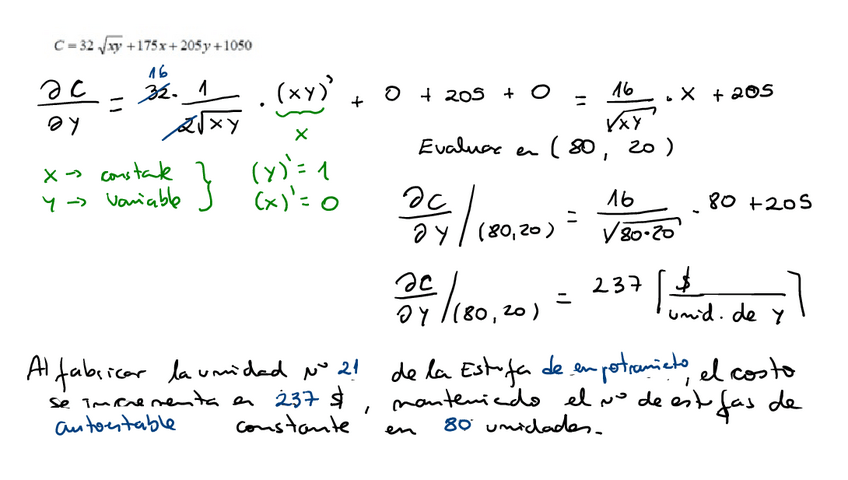 C = 32 √xy + 175x + 205y + 1050
∂C/∂y = 32 16 · 1/2√xy · (xy)' + 0 + 205 + 0 = 16/√xy · x + 205
x
Evaluar en (80, 20)
x → constante } (y)' = 1
y → variable } (x)' = 0
∂C/∂y /(80,20) = 16/√80·20 · 80 + 205
∂C/∂y /(80,20) = 237 [$/unid. de y]
Al fabricar la unidad N° 21 de la Estufa de empotramieto, el costo
se incrementa en 237 $, manteniendo el N° de estufas de
autoestable constante en 80 unidades.